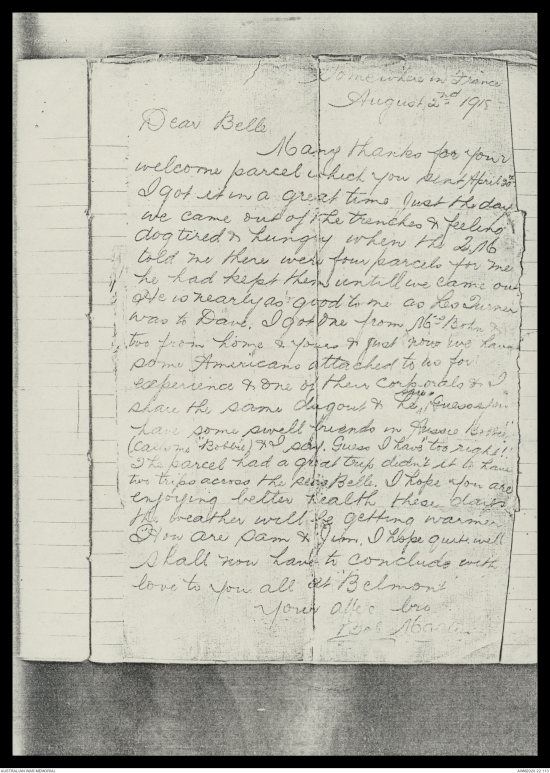 Somewhere in France
August, 2nd 1918
Dear Belle
Many thanks for your
welcome parcel which you sent April 30th
I got it in a great time. Just the day
we came out of the trenches & feeling
dogtired & hungry when the 2/16
told me there were four parcels for me
he had kept them untill we came out
He is nearly as good to me as Les Turner
was to Dave. I got one from Mrs Bohn &
two from home & yours & just now we have
some Americans attached to us for
experience & one of their corporals & I
share the same dugout & he says "Guess you
have some swell friends in Aussie Bobbie",
(calls me "Bobbie) & I say. Guess I have too right!!
The parcel had a great trip didn't it to have
two trips across the seas Belle. I hope you are
enjoying better health these days
the weather will be getting warmer
How are Sam & Jim, I hope quite well
Shall now have to conclude with
love to you all at "Belmont"
Your affec bro
AUSTRALIAN WAR MEMORIAL